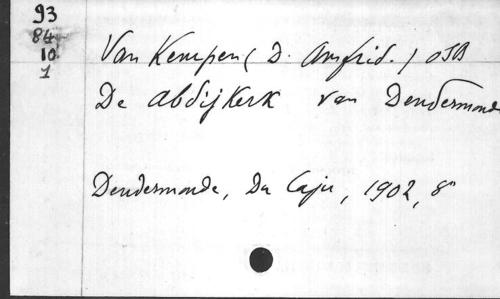 93
84
10
1
Van Kempen (D. Amfrid.) OSB
De Abdijkerk van Dendermonde
Dendermonde, Du Caju, 1902, 8°